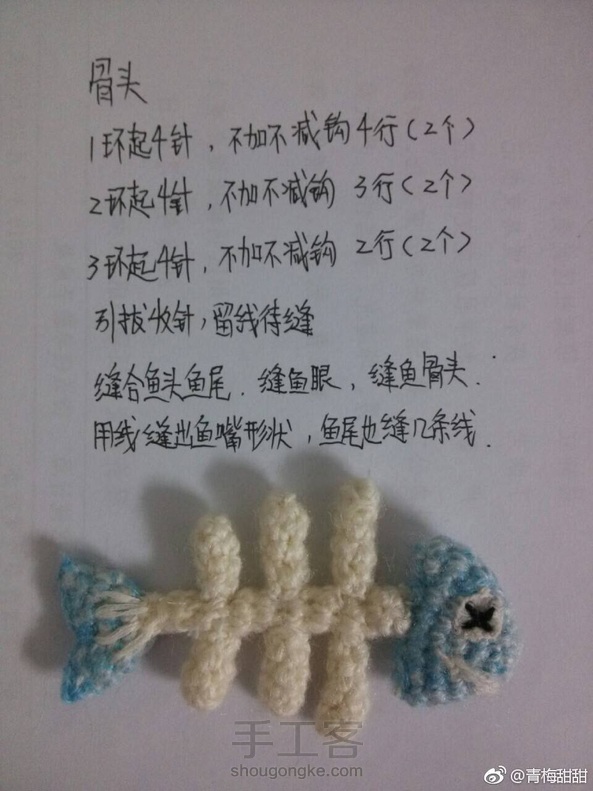 骨头
1环起4针，不加不减钩4行(2个)
2环起4针，不加不减钩 3行(2个)
3环起4针，不加不减钩 2行(2个)
引拔收针，留线待缝
缝合鱼头鱼尾．缝鱼眼，缝鱼骨头．
用线缝出鱼嘴形状，鱼尾也缝几条线．
手工客
shougongke.com
@青梅甜甜